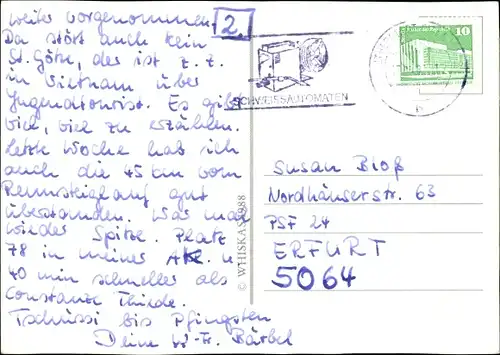 weiter vorgenommen. 2.
Da stört auch kein
St. Götz, der ist z. Z.
in Vietnam über
Jugendtourist. Es gibt
viel, viel zu erzählen.
Letzte Woche hab ich
auch die 45 km vom
Rennsteiglauf gut
überstanden. War mal
wieder Spitze. Platz
78 in meiner AK u.
40 min schneller als
Constanze Thiede.
Tschüssi bis Pfingsten
Deine W-Fr. Bärbel
© WHISKAS 1988
SCHWEISSAUTOMATEN
10
Susan Bloß
Nordhäuserstr. 63
PSF 24
ERFURT
5064